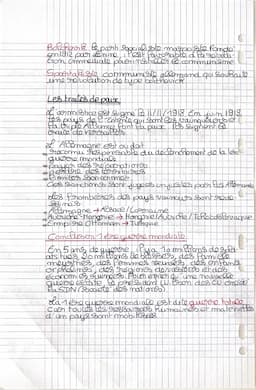 Bolchevik: le parti
par Lénine, il est favorable à la révolu-
tion immédiate pour installer le communisme
Spartakiste communiste allemand qui souhaite
une révolution de type bolchevik.
Les traités de paix
L'armistice est signé le 11/11/1918. En juin 1919
les pays de l'entente qui sont les vainqueurs
la triple Alliance font la paix. Ils signent le
traité de Versailles
L'Allemagne
reconnu responsable du déclenchement de la 1ère
guerre mondiale
payer des réparations
perdre des territoires
Ces sanctions sont jugées injustes par les Allemands
des frontières des pays vaincus sont
Allemagne → Alsace / Lorraine
Autriche-Hongrie → Hongrie / Autriche / Tchécoslovaquie
Empire Ottoman → Turquie
Conclusion 1ère guerre mondiale
En 5 ans de guerre il y a 10 millions de sol-
dats tués, 20 millions de blessés, des familles
des femmes veuves, des enfants
orphelins, des régions dévastées et des
économies Pour éviter une nouvelle
guerre le président W. Wilson des EU crée
la SDN (société des nations)
La 1ère guerre mondiale est dite guerre totale
car toutes les ressources humaines et matérielles
d'un pays sont mobilisées